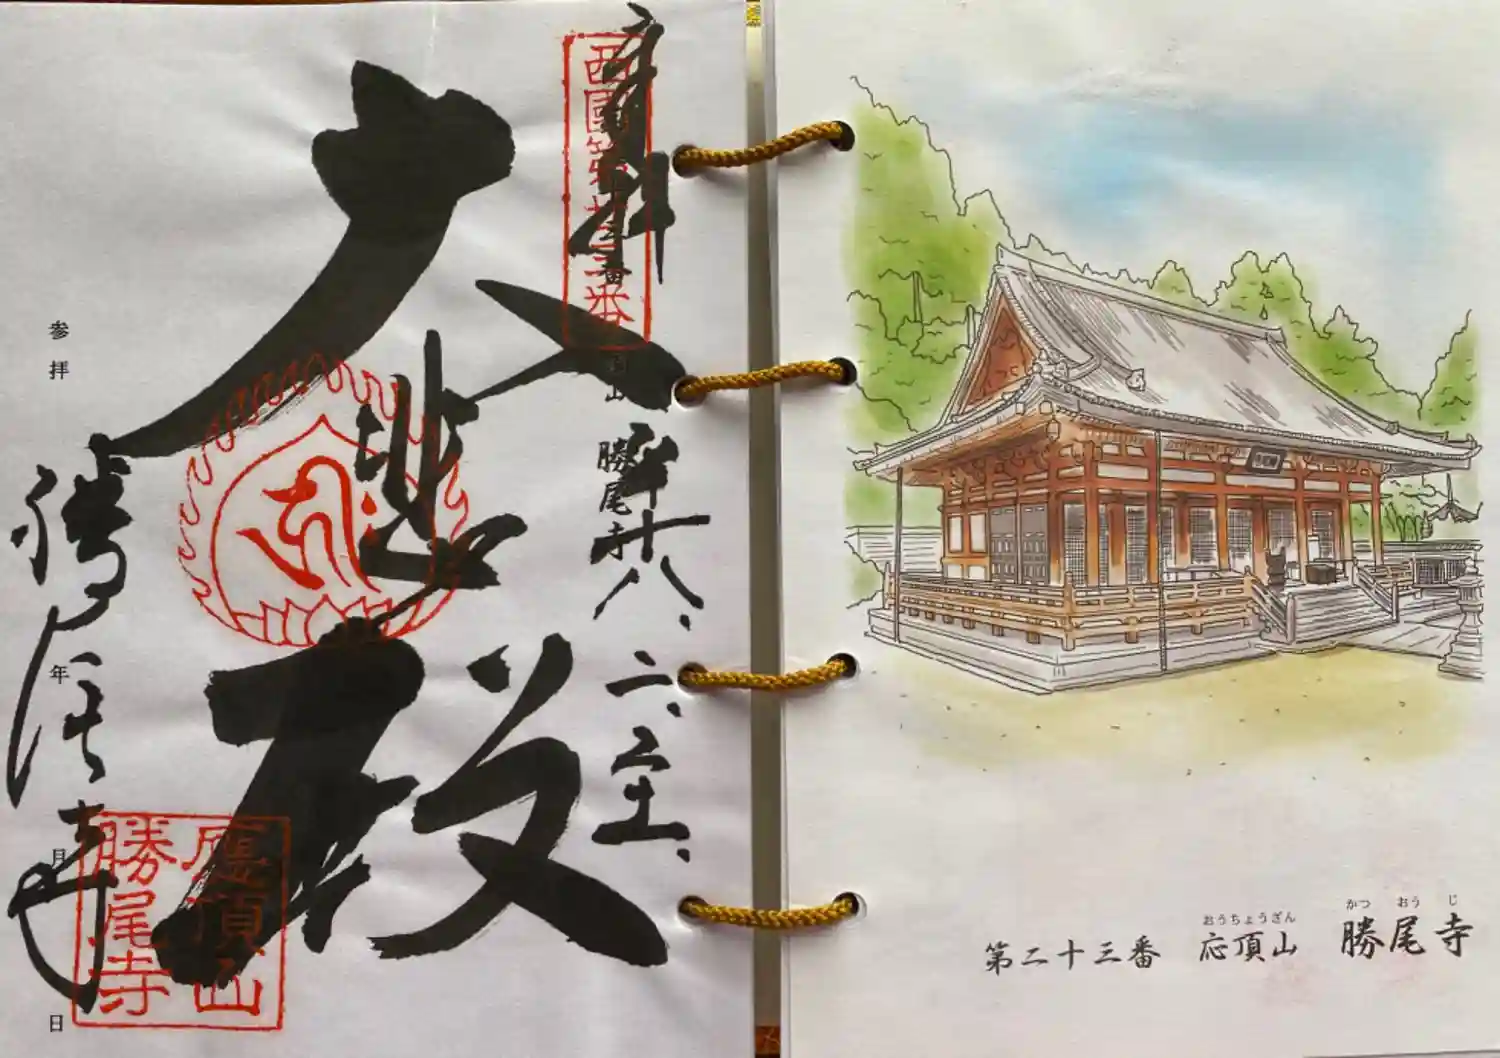 奉拝
西國第廿三番
勝尾寺
廿八、二、
大悲殿
参拝 年 月 日
勝尾寺
應頂山
勝尾寺
おうちょうざん かつおうじ
第二十三番 応頂山 勝尾寺